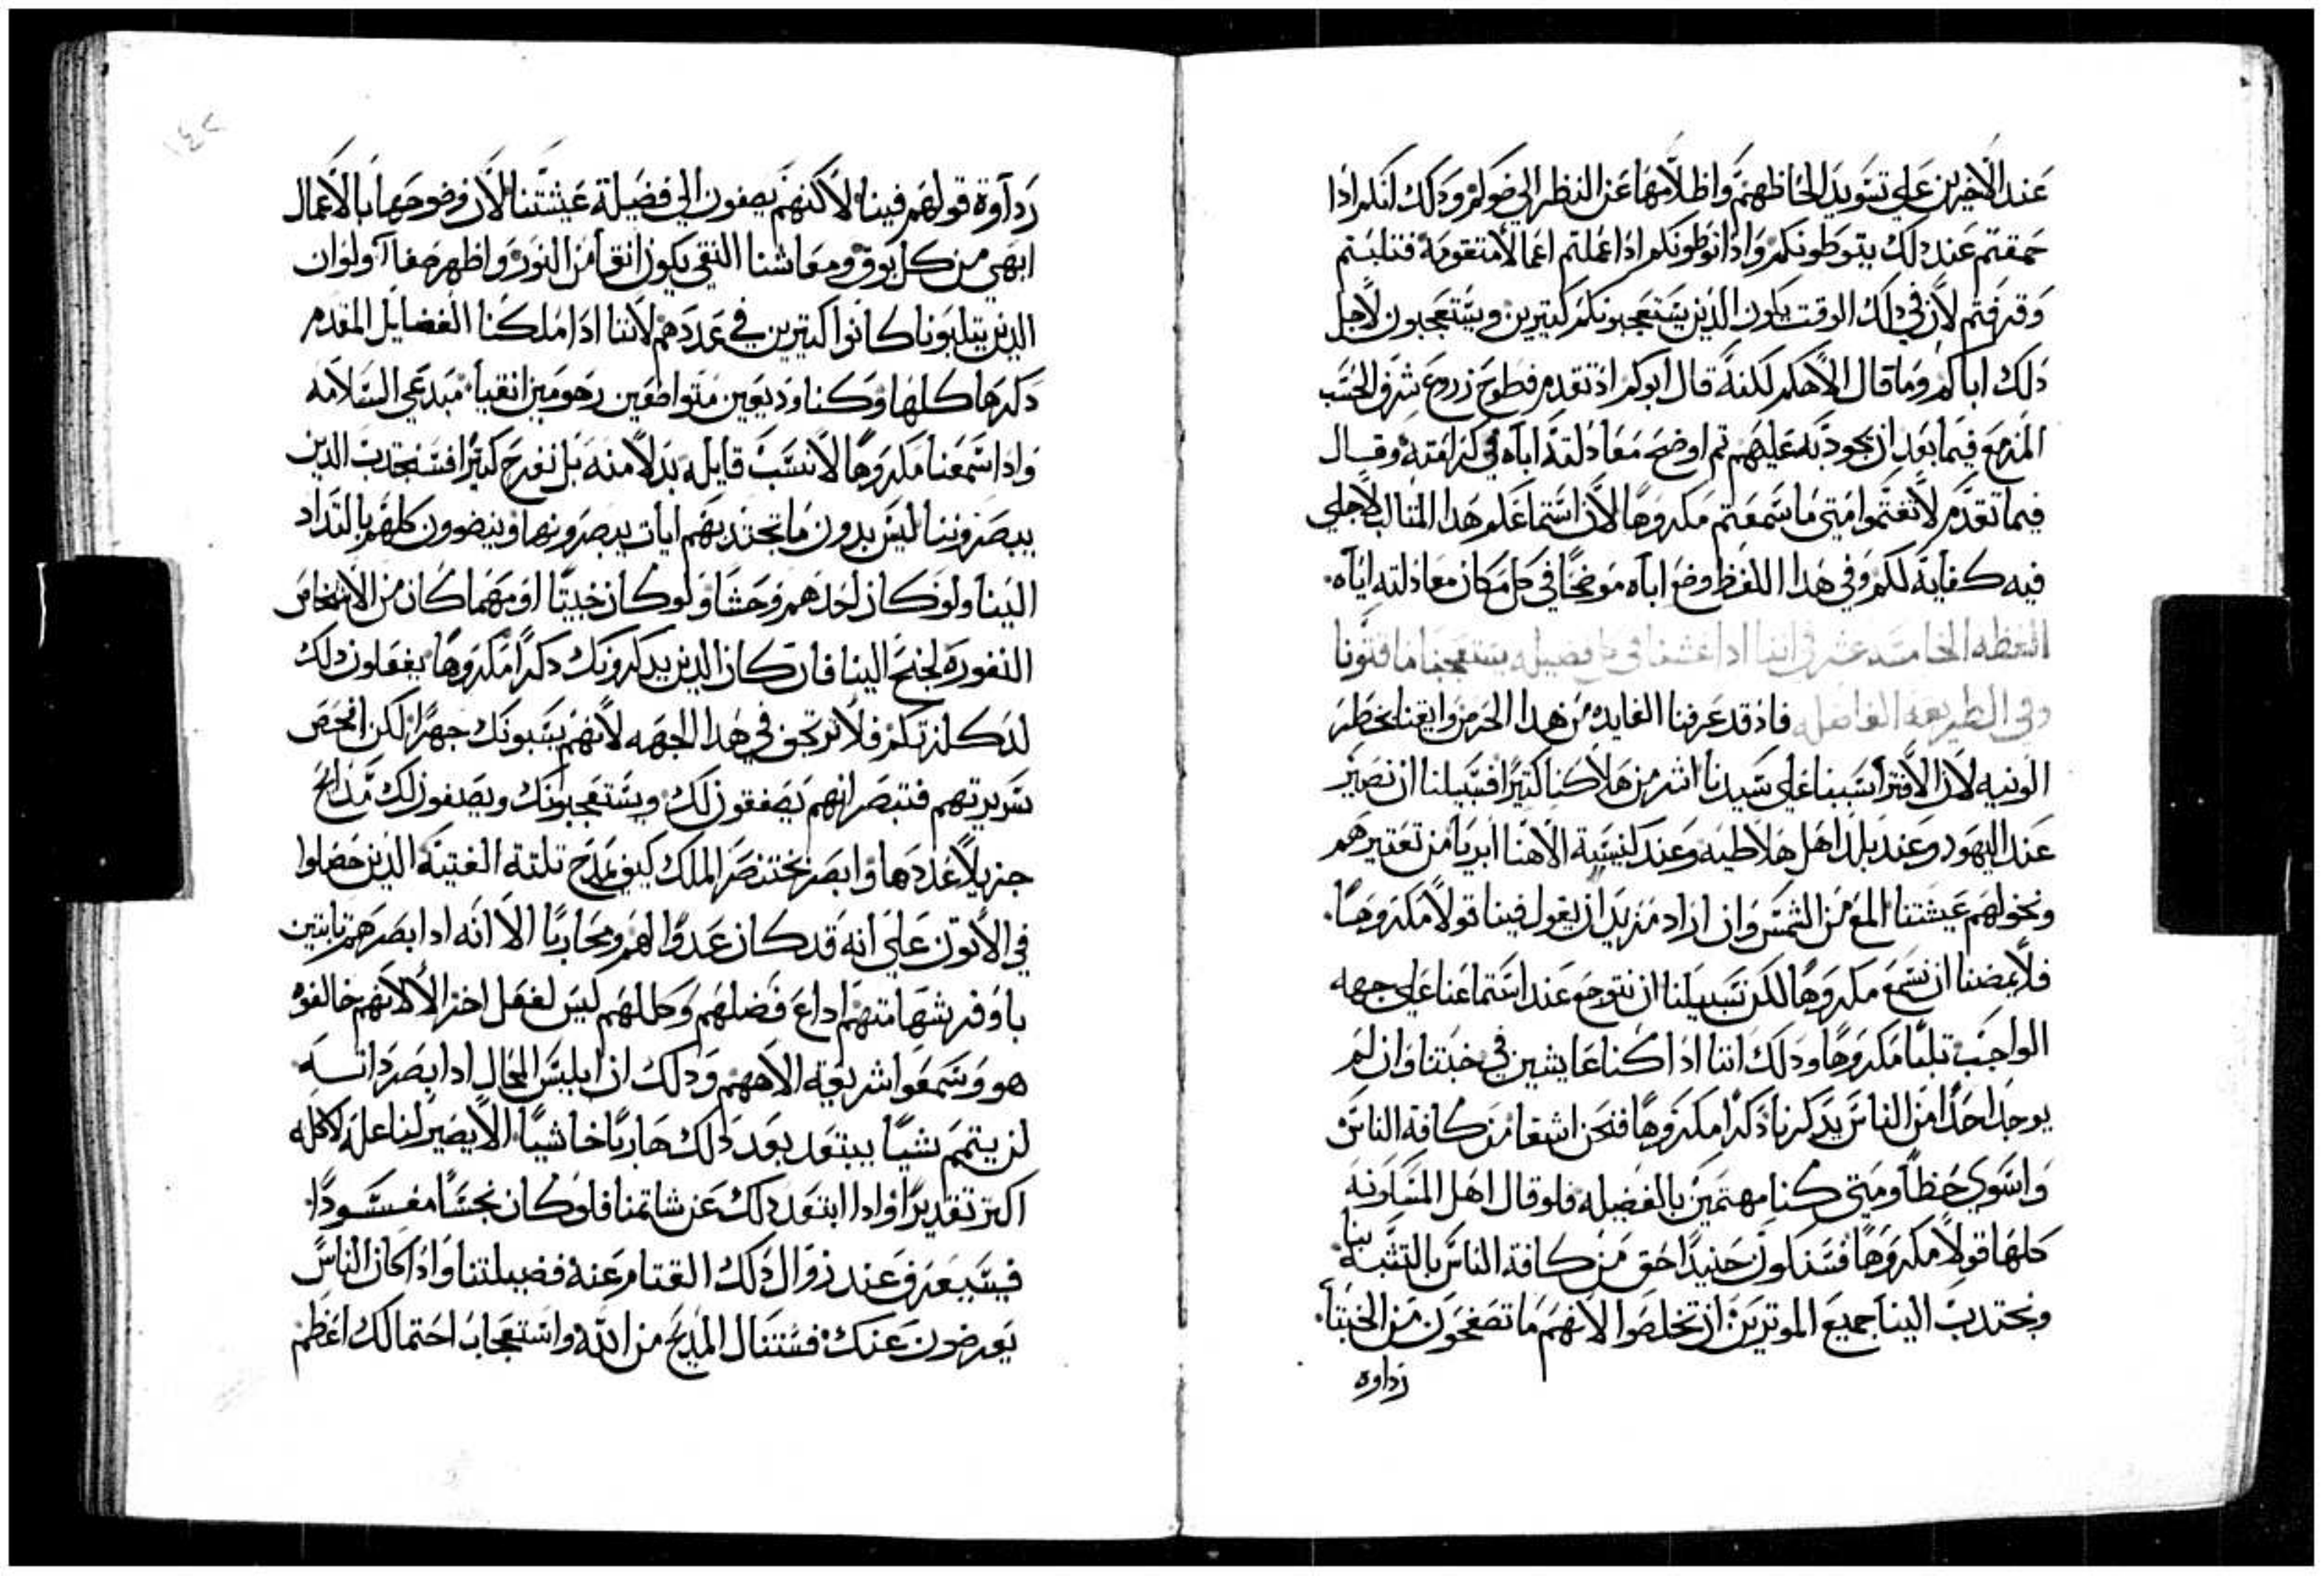 عند الاخرين على تسويد الحاظهم واظلامها عن النظر الى ضوكم وذلك انكم اذا
حمقتم عند ذلك يتوطونكم واذا توطونكم اذا اعملتم اعمالا متقومة فتلبتم
وقرفتم لان في ذلك الوقت يكون الذين يستعجبونكم كتيرين ويستعجبون لاجل
ذلك اباكم وما قال الاهكم لكنه قال ابوكم اذ تقدم فطوح زروع شرف الحسب
المزمع فيما بعد ان يجود به عليهم تم اوضح معادلته اباه في كرامته وقال
فيما تقدم لا تغتموا متى ما سمعتم مكروها لان استماعكم هذا المثالب لاجلي
فيه كفاية لكم وفي هذا اللفظ وضع اباه موضحا في كل مكان معادلته اياه
العظه الخامسه عشر في اننا اذا عشنا في كل فضيله يستعجبنا ما قتونا
وفي الطريقه الفاضله فاذ قد عرفنا الفايده من هذا الحرص وايقنا بخطر
الونيه لان الافترا بسببنا على سيدنا اشر من هلاكنا كتيرا فسبيلنا ان نصير
عند اليهود وعند بلد اهل هلاطيه وعند كنيسية الاهنا ابريا من تعتيرهم
ونخولهم عيشتنا المع من الشمس وان اراد مزيد ان يقول فينا قولا مكروها
فلا يمضنا ان نسمع مكروها لكن سبيلنا ان نتوجع عند استماعنا على جهه
الواجب تلبا مكروها وذلك اننا اذا كنا عايشين في خبتنا وان لم
يوجد احدا من الناس يذكرنا ذكرا مكروها فنحن اشقا من كافة الناس
واسوى حظا ومتى كنا مهتمين بالفضيله فلو قال اهل المسكونه
كلها قولا مكروها فسنكون حنيدا احق من كافة الناس بالتشبه بنا
ونجتدب الينا جميع الموترين ان يتخلصوا لانهم ما تصغحون من الخبتا
رداوة
رداوة قولهم فينا لاكنهم يصغون الى فضيلة عيشتنا لان وضوحها بالاعمال
ابهى من كل بوق ومعاشنا النقي يكون انقا من النور واظهر صفا ولو ان
الذين يتلبونا كانوا كتيرين في عددهم لاننا اذا ملكنا الفضايل المقدم
ذكرها كلها وكنا وديعين متواضعين رحومين انقيا مبدعي السلامه
واذا سمعنا مكروها لا نسب قايله بدلا منه بل نفرح كتيرا فسنجتدب الذين
يبصروننا ليس بدون ما تجتدبهم ايات يبصرونها وينضوون كلهم بالتداد
الينا ولو كان احدهم وحشا ولو كان خبيتا او مهما كان من الاشخاص
النفوره لجنح الينا فان كان الذين يذكرونك ذكرا مكروها يفعلون ذلك
لذكلتكم فلا ترتجف في هذا الجهه لانهم يسبونك جهرا لكن افحص
سريرتهم فتبصر انهم يصفقون لك ويستعجبونك ويصنفون لك مدايح
جزيلا عددها وابصر بختنصر الملك كيف يمدح تلتة الفتية الذين حصلوا
في الاتون على انه قد كان عدوا لهم ومحاربا الا انه اذا بصرهم تابتين
باوفر شهامتهم اداع فضلهم وكللهم ليس لفعل اخر الا لانهم خالفوه
هو وسمعوا شريعة الاههم وذلك ان ابليس المحال اذا بصر ذاته
لن يتمم شيا يبتعد بعد ذلك هاربا خاشيا الا يصير لنا علة لاكله
اكتر تقديرا واذا ابتعد ذلك عن شاتمنا فلو كان نجسا مفسودا
فسيعرف عند زوال ذلك القتام عنه فضيلتنا واذا كان الناس
يعرضون عنك فستنال المديح من الله واستعجاب احتمالك اعظم